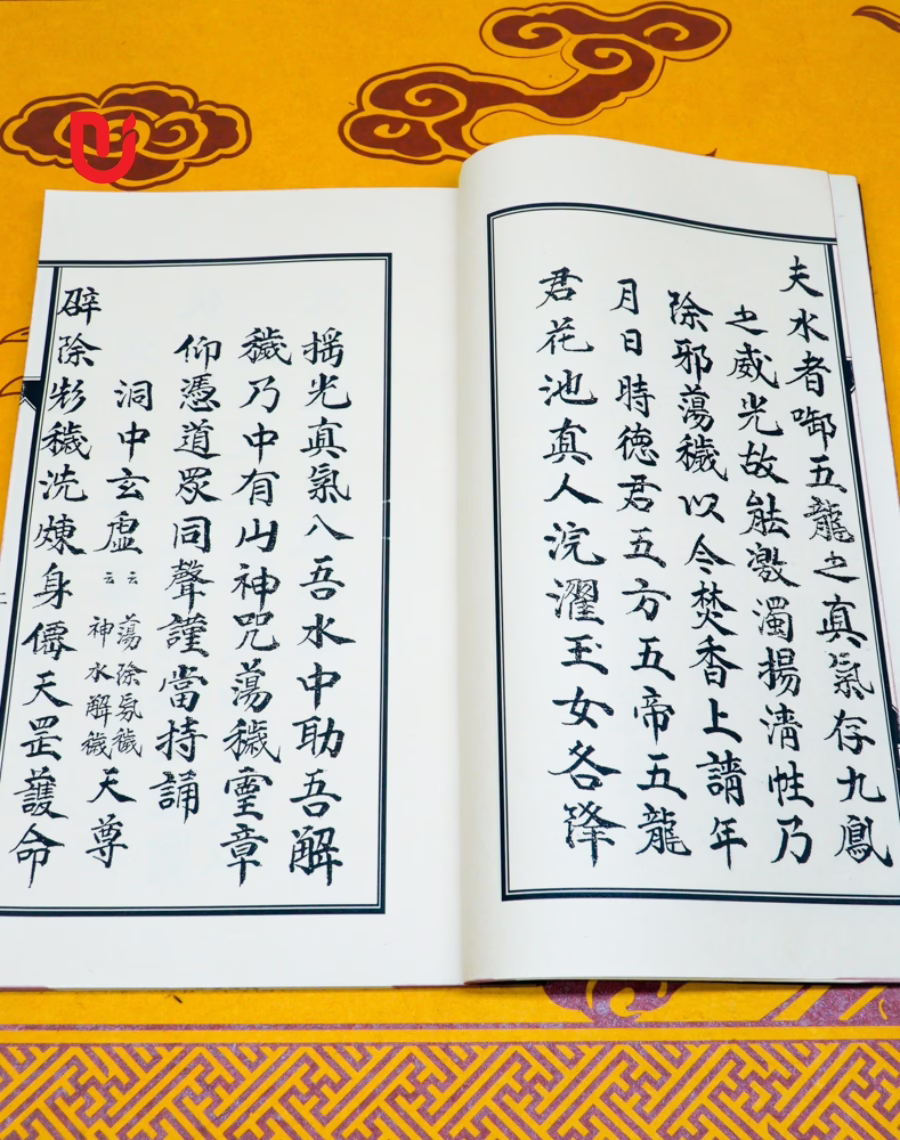 夫水者啣五龍之真氣存九鳳
之威光故能激濁揚清惟乃
除邪蕩穢以今焚香上請年
月日時德君五方五帝五龍
君花池真人浣濯玉女各降
搖光真氣入吾水中助吾解
穢乃中有山神咒蕩穢靈章
仰憑道眾同聲謹當持誦
洞中玄虛云云蕩除氛穢神水解穢天尊
辟除氛穢洗煉身僊天罡護命